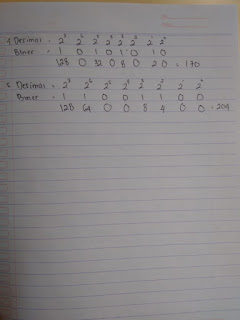 4. Desimal = 2⁷ 2⁶ 2⁵ 2⁴ 2³ 2² 2¹ 2⁰
Biner = 1 0 1 0 1 0 1 0
128 0 32 0 8 0 2 0 = 170
5. Desimal = 2⁷ 2⁶ 2⁵ 2⁴ 2³ 2² 2¹ 2⁰
Biner = 1 1 0 0 1 1 0 0
128 64 0 0 8 4 0 0 = 204